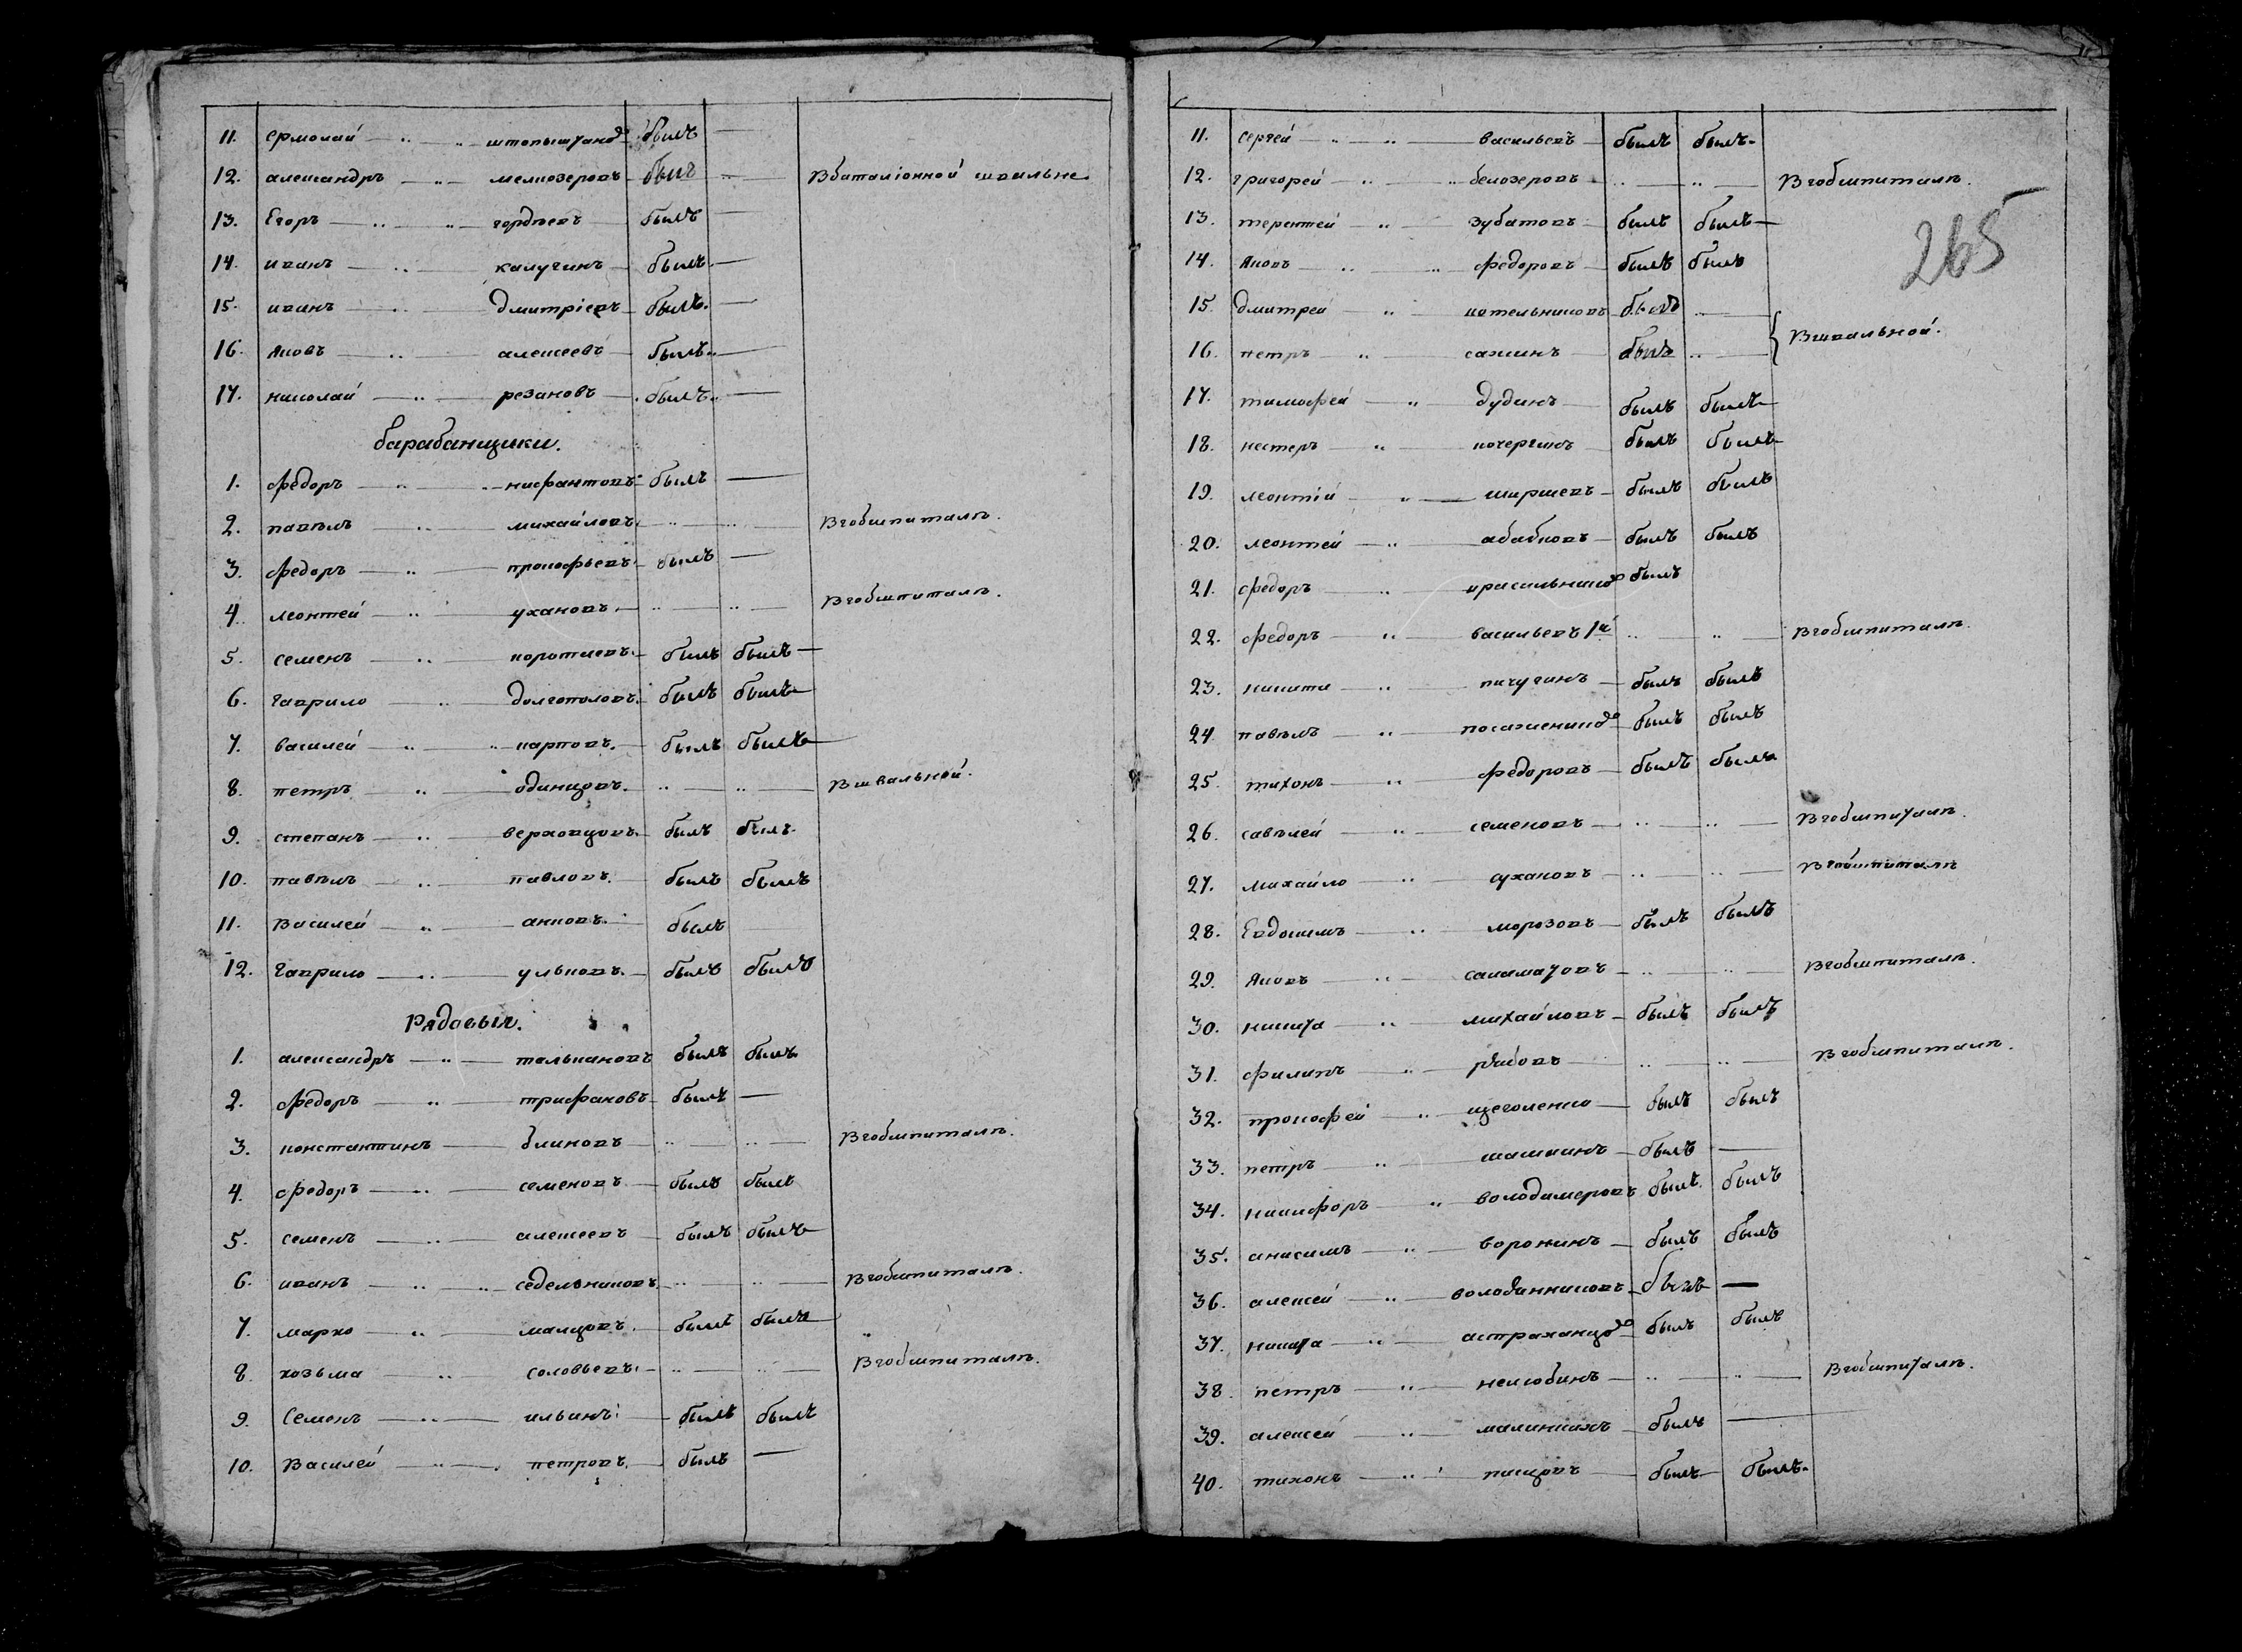 11. Ермолай штопыштанов былъ
12. александръ мелнозеровъ былъ В баталіонной швальне
13. Егоръ гордѣевъ былъ
14. иванъ калугинъ былъ
15. иванъ дмитріевъ былъ
16. Яковъ алексеевъ былъ
17. николай резановъ былъ
барабанщики.
1. федоръ нифантовъ былъ
2. павѣлъ михайловъ В гобшпиталѣ.
3. федоръ прокофьевъ былъ
4. леонтей ухановъ В гобшпиталѣ.
5. семенъ коротаевъ былъ былъ
6. гаврило долгополовъ былъ былъ
7. василей карповъ былъ былъ
8. петръ одинцовъ В швальной.
9. степанъ верховцовъ былъ былъ
10. павѣлъ павловъ былъ былъ
11. Василей анковъ былъ
12. гаврило ульковъ былъ былъ
Рядовыя.
1. александръ толькановъ былъ былъ
2. федоръ трифановъ былъ
3. константинъ блиновъ В гобшпиталѣ.
4. федоръ семеновъ былъ былъ
5. семенъ алексеевъ былъ былъ
6. иванъ седельниковъ В гобшпиталѣ.
7. марко малцовъ былъ былъ
8. козьма соловьевъ В гобшпиталѣ.
9. Семенъ ильинъ былъ былъ
10. Василей петровъ былъ
11. Сергей васильевъ былъ былъ
12. григорей белозеровъ В гобшпиталѣ.
265
13. терентей зубатовъ былъ былъ
14. Яковъ федоровъ былъ былъ
15. дмитрей котельниковъ былъ
В швальной.
16. петръ сажинъ былъ
17. тимофей дудинъ былъ былъ
18. нестеръ кочергинъ былъ былъ
19. леонтій ширшевъ былъ былъ
20. леонтей абабковъ былъ былъ
21. федоръ красильников былъ
22. федоръ васильевъ 1й В гобшпиталѣ.
23. никита пичугинъ былъ былъ
24. павѣлъ посаженников былъ былъ
25. тихонъ федоровъ былъ былъ
26. савѣлей семеновъ В гобшпиталѣ.
27. михайло сухановъ В гобшпиталѣ
28. Евдокимъ морозовъ былъ былъ
29. Яковъ саламатовъ В гобшпиталѣ.
30. никита михайловъ былъ былъ
31. филипъ рябовъ В гобшпиталѣ.
32. прокофей щеголенко былъ былъ
33. петръ шашкинъ былъ
34. никифоръ володимеровъ былъ былъ
35. анисимъ воронинъ былъ былъ
36. алексей володинниковъ былъ
37. никита астраханцов былъ былъ
38. петръ нелюбинъ В гобшпиталѣ.
39. алексей малинкинъ былъ
40. тихонъ пищовъ былъ былъ